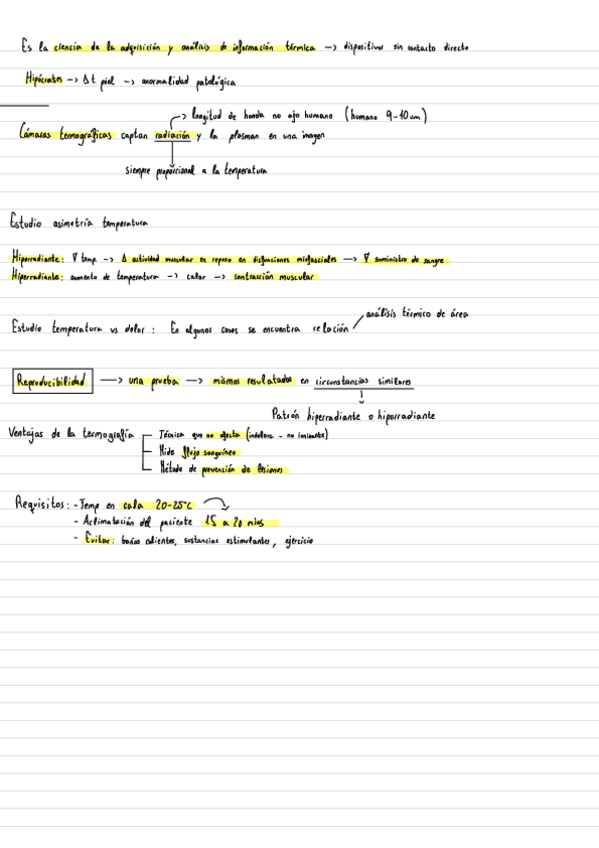 Es la ciencia de la adquisición y análisis de información térmica -> dispositivos sin contacto directo
Hipócrates -> Δt piel -> anormalidad patológica
-> longitud de honda no ojo humano (humano 9-10um)
Cámaras termográficas captan radiación y la plasman en una imagen
siempre proporcional a la temperatura
Estudio asimetría temperatura
Hiporradiante: ∇ temp. -> Δ actividad muscular en reposo en disfunciones miofasciales -> ∇ suministro de sangre
Hiperradiante: aumento de temperatura -> calor -> contracción muscular
análisis térmico de área
Estudio temperatura vs dolor: En algunos casos se encuentra relación
Reproducibilidad -> una prueba -> mismos resultados en circunstancias similares
Patrón hiperradiante o hiporradiante
Ventajas de la termografía
Técnica que no afecta (indolora - no ionizante)
Mide flujo sanguíneo
Método de prevención de lesiones
Requisitos: - Temp en sala 20-25ºC
- Aclimatación del paciente 15 a 20 mins
- Evitar: baños calientes, sustancias estimulantes, ejercicio